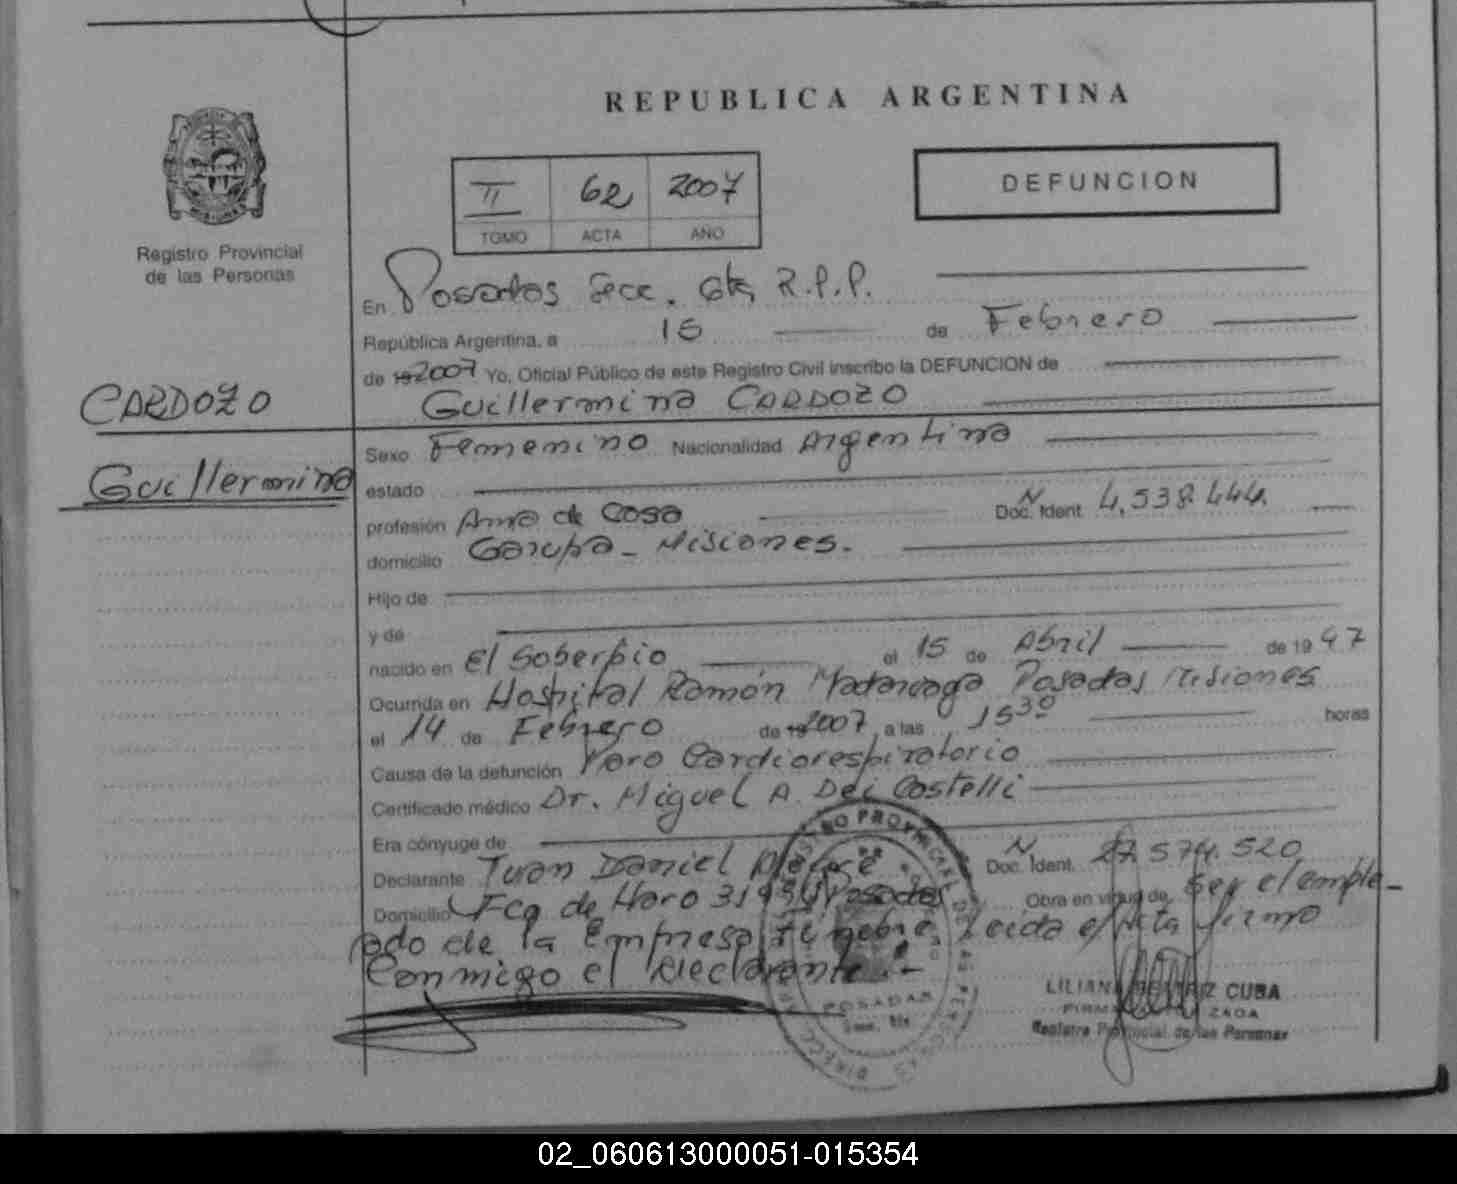 REPUBLICA ARGENTINA
DEFUNCION
II 62 2007
TOMO ACTA AÑO
Registro Provincial
de las Personas
CARDOZO
Guillermina
En Posadas Secc. 6ta R.P.P.
República Argentina, a 15 de Febrero
de 2007 Yo, Oficial Público de este Registro Civil inscribo la DEFUNCION de
Guillermina CARDOZO
Sexo Femenino Nacionalidad Argentina
estado
profesión Ama de Casa Doc. Ident. 4.538.444.
domicilio Garupa - Misiones.
Hijo de
y de
nacido en El Soberbio el 15 de Abril de 1947
Ocurrida en Hospital Ramón Madariaga Posadas Misiones
el 14 de Febrero de 2007 a las 15 30 horas
Causa de la defunción Paro Cardiorespiratorio
Certificado médico Dr. Miguel A. Dei Castelli
Era cónyuge de
Declarante Juan Daniel Doc. Ident. 27.574.520
Domicilio Fco de Haro Posadas Obra en virtud de ser el emple-
ado de la Empresa Fúnebre. Leida el Acta firma
Conmigo el Declarante.-
POSADAS
LILIANA BEATRIZ CUBA
Registro Provincial de las Personas
02_060613000051-015354